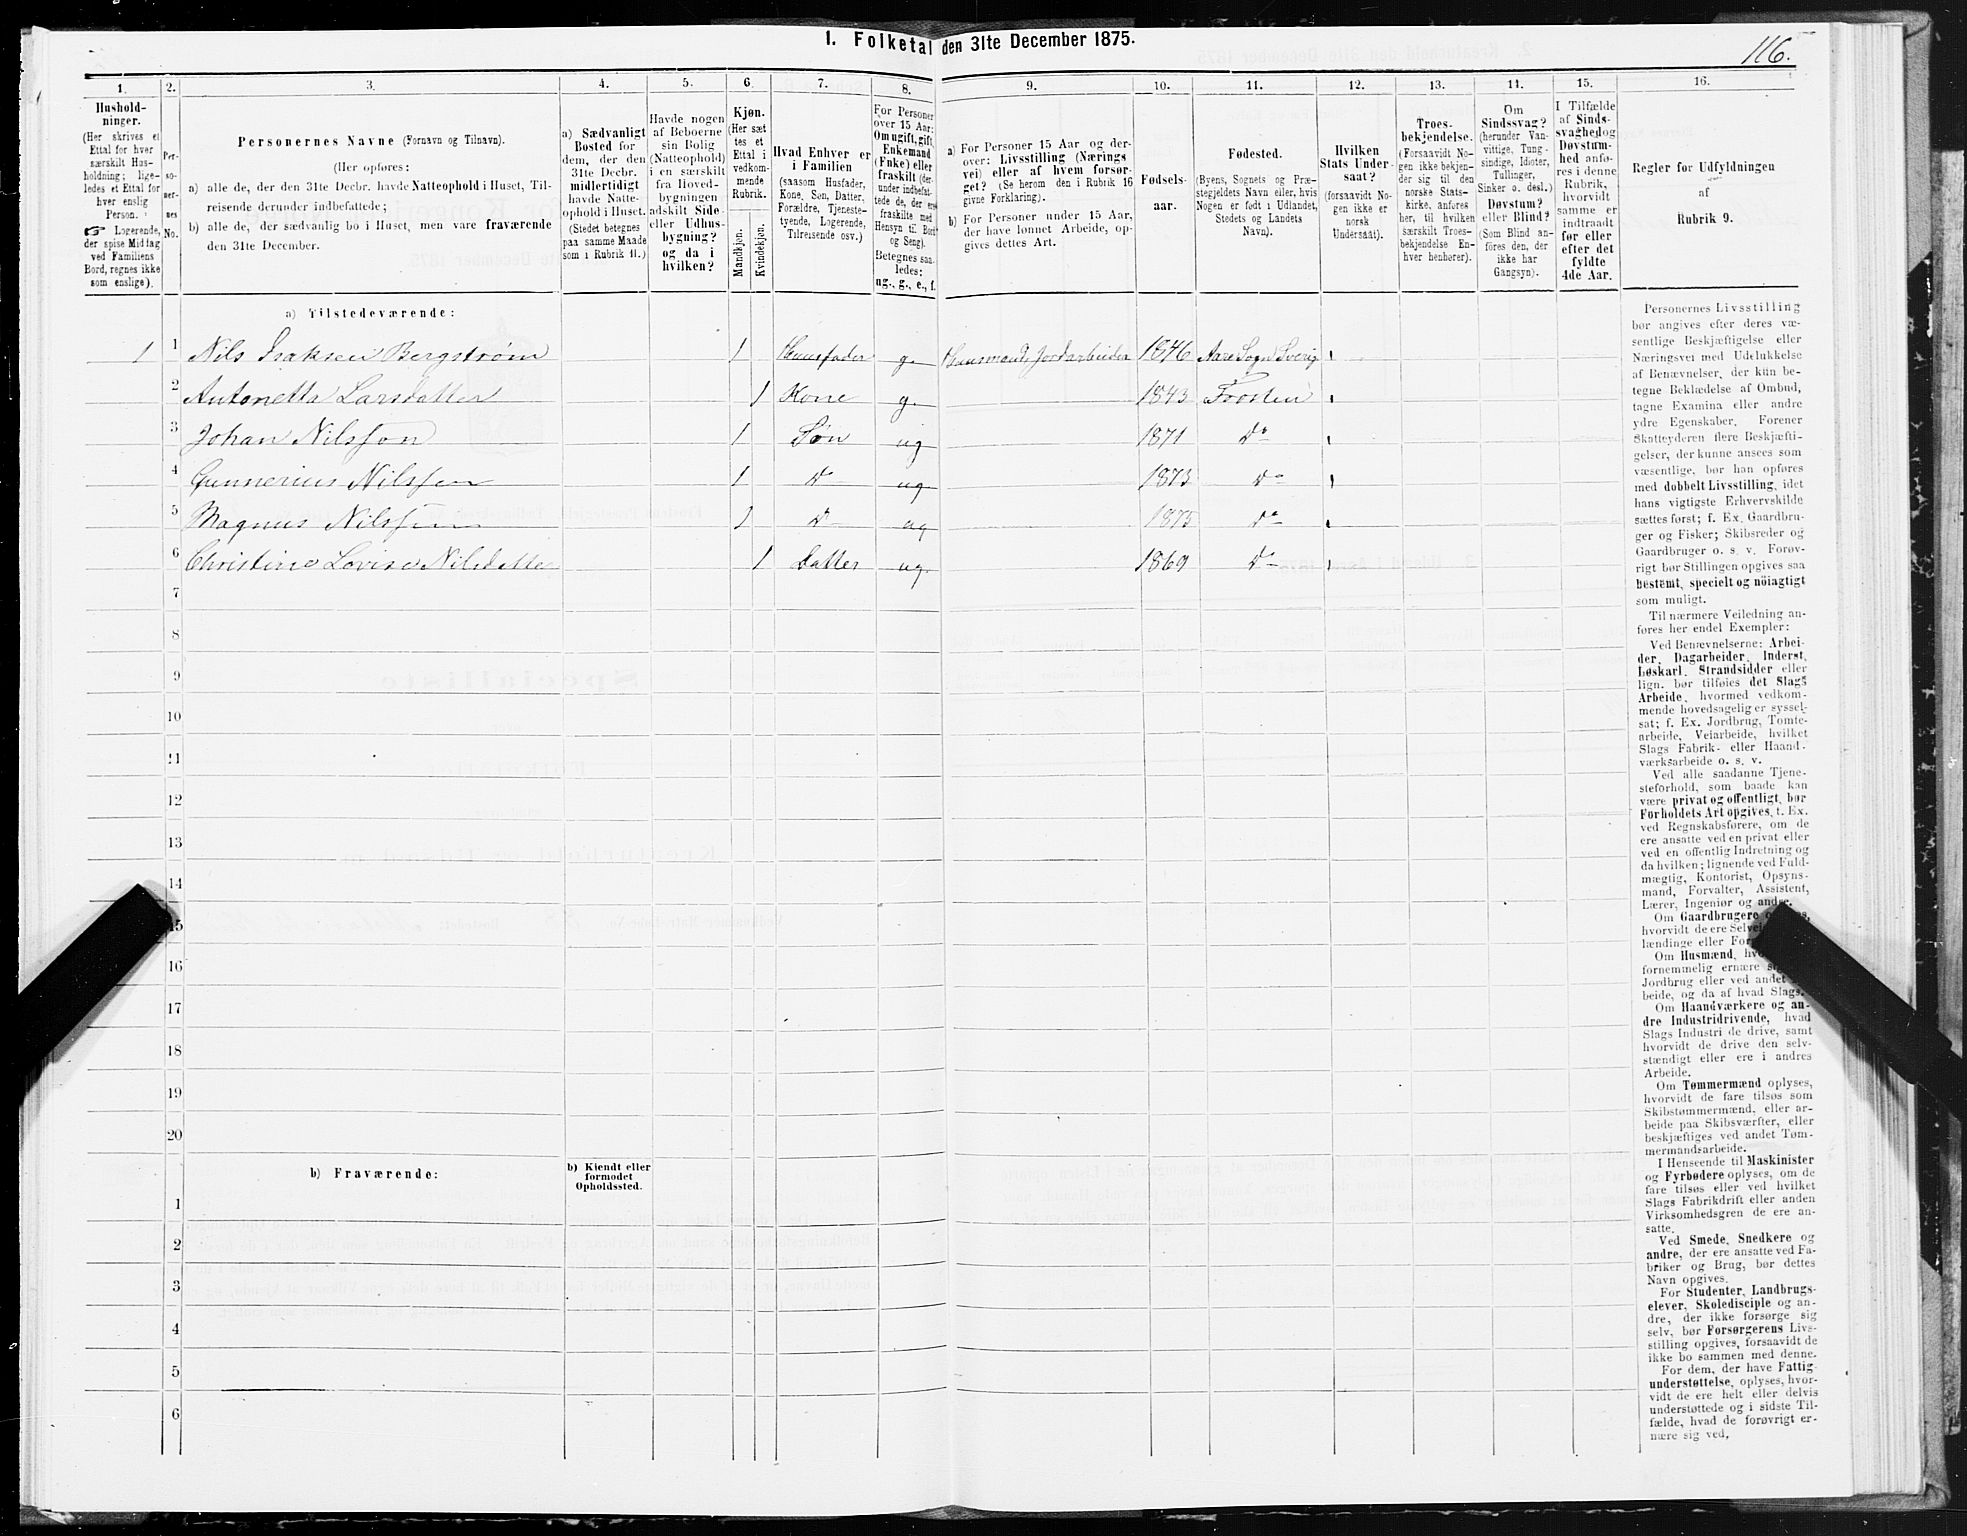 1. Folketal den 31te December 1875.
116.
1.
2.
3.
4.
5.
6.
7.
8.
9.
10.
11.
12.
13.
14.
15.
16.
Hushold-
ninger.
(Her skrives et
Ettal for hver
særskilt Hus-
holdning; lige-
ledes et Ettal for
hver enslig
Person.
☞ Logerende,
der spise Middag
ved Familiens
Bord, regnes ikke
som enslige).
Per-
so-
ner-
nes
No.
Personernes Navne (Fornavn og Tilnavn).
(Her opføres:
a) alle de, der den 31te Decbr. havde Natteophold i Huset, Til-
reisende derunder indbefattede;
b) alle de, der sædvanlig bo i Huset, men vare fraværende
den 31te December.
a) Sædvanligt
Bosted for
dem, der den
31te Decbr.
midlertidigt
havde Natte-
ophold i Huset.
(Stedet betegnes
paa samme Maade
som i Rubrik 11.)
Havde nogen
af Beboerne
sin Bolig
(Natteophold)
i en særskilt
fra Hoved-
bygningen
adskilt Side-
eller Udhus-
bygning?
og da i
hvilken?
Kjøn.
(Her sæt-
tes et
Ettal i
vedkom-
mende
Rubrik.)
Mandkjøn.
Kvindekjøn.
Hvad Enhver er
i Familien
(saasom Husfader,
Kone, Søn, Datter,
Forældre, Tjeneste-
tyende, Logerende,
Tilreisende osv.)
For Personer
over 15 Aar:
Om ugift, gift,
Enkemand
(Enke) eller
fraskilt (der-
under indbefat-
tede de, der ere
fraskilte med
Hensyn til Bord
og Seng).
Betegnes saa-
ledes:
ug., g., e., f.
a) For Personer 15 Aar og der-
over: Livsstilling (Nærings-
vei) eller af hvem forsør-
get? (Se herom den i Rubrik 16
givne Forklaring).
b) For Personer under 15 Aar,
der have lønnet Arbeide, op-
gives dettes Art.
Fødsels-
aar.
Fødested.
(Byens, Sognets og Præ-
stegjeldets Navn eller, hvis
Nogen er født i Udlandet,
Stedets og Landets
Navn).
Hvilken
Stats Under-
saat?
(forsaavidt No-
gen ikke er
norsk
Undersaat).
Troes-
bekjendelse.
(Forsaavidt No-
gen ikke bekjen-
der sig til den
norske Stats-
kirke, anføres
her, til hvilken
særskilt Troes-
bekjendelse En-
hver henhører).
Om
Sindssvag?
(herunder Van-
vittige, Tung-
sindige, Idioter,
Tullinger,
Sinker o. desl.)
Døvstum?
eller Blind?
(Som Blind an-
føres den, der
ikke har
Gangsyn).
I Tilfælde
af Sinds-
svaghed og
Døvstum-
hed anfø-
res i denne
Rubrik,
hvorvidt
samme er
indtraadt
før eller
efter det
fyldte
4de Aar.
Regler for Udfyldningen
af
Rubrik 9.
a) Tilstedeværende:
1 1 Nils Isaksen Bergstrøm 1 Huusfader g. Huusmand, Jordarbeider 1846 Aare Sogn Sverig
2 Antonetta Larsdatter 1 Kone g. 1843 Frosten
3 Johan Nilsson 1 Søn ug 1871 Do
4 Gunnerius Nilssen 1 D ug 1873 Do
5 Magnus Nilssen 1 D ug 1875 Do
6 Christine Lovise Nilsdatter 1 Datter ug. 1869 Do
7
8
9
10
11
12
13
14
15
16
17
18
19
20
b) Fraværende:
b) Kjendt eller
formodet
Opholdssted.
1
2
3
4
5
6
Personernes Livsstilling
bør angives efter deres væ-
sentlige Beskjæftigelse eller
Næringsvei med Udelukkelse
af Benævnelser, der kun be-
tegne Beklædelse af Ombud,
tagne Examina eller andre
ydre Egenskaber. Forener
Skatteyderen flere Beskjæfti-
gelser, der kunne ansees som
væsentlige, bør han opføres
med dobbelt Livsstilling, idet
hans vigtigste Erhvervskilde
sættes først; f. Ex. Gaardbru-
ger og Fisker; Skibsreder og
Gaardbruger o. s. v. Forøv-
rigt bør Stillingen opgives saa
bestemt, specielt og nöiagtigt
som muligt.
Til nærmere Veiledning an-
føres her endel Exempler:
Ved Benævnelserne: Arbei-
der, Dagarbeider, Inderst,
Løskarl, Strandsidder eller
lign. bør tilføies det Slags
Arbeide, hvormed vedkom-
mende hovedsagelig er syssel-
sat; f. Ex. Jordbrug, Tomte-
arbeide, Veiarbeide, hvilket
Slags Fabrik- eller Haand-
værksarbeide o. s. v.
Ved alle saadanne Tjene-
steforhold, som baade kan
være privat og offentligt, bør
Forholdets Art opgives, t. Ex.
ved Regnskabsførere, om de
ere ansatte ved en privat eller
ved en offentlig Indretning og
da hvilken; lignende ved Fuld-
mægtig, Kontorist, Opsyns-
mand, Forvalter, Assistent,
Lærer, Ingeniør og andre.
Om Gaardbrugere
hvorvidt de ere
lændinge eller
Om Husmænd,
fornemmelig ernære
Jordbrug eller ved andet
beide, og da af hvad Slags.
Om Haandværkere og an-
dre Industridrivende, hvad
Slags Industri de drive, samt
hvorvidt de drive den selv-
stændigt eller ere i andres
Arbeide.
Om Tømmermænd oplyses,
hvorvidt de fare tilsøs som
Skibstømmermænd, eller ar-
beide paa Skibsværfter, eller
beskjæftiges ved andet Tøm-
mermandsarbeide.
I Henseende til Maskinister
og Fyrbødere oplyses, om de
fare tilsøs eller ved hvilket
Slags Fabrikdrift eller anden
Virksomhedsgren de ere an-
satte.
Ved Smede, Snedkere og
andre, der ere ansatte ved Fa-
briker og Brug, bør dettes
Navn opgives.
For Studenter, Landbrugs-
elever, Skoledisciple og an-
dre, der ikke forsørge sig
selv, bør Forsørgerens Livs-
stilling opgives, forsaavidt de
ikke bo sammen med denne.
For dem, der have Fattig-
understøttelse, oplyses, hvor-
vidt de ere helt eller delvis
understøttede og i sidste Til-
fælde, hvad de forøvrigt er-
nære sig ved.